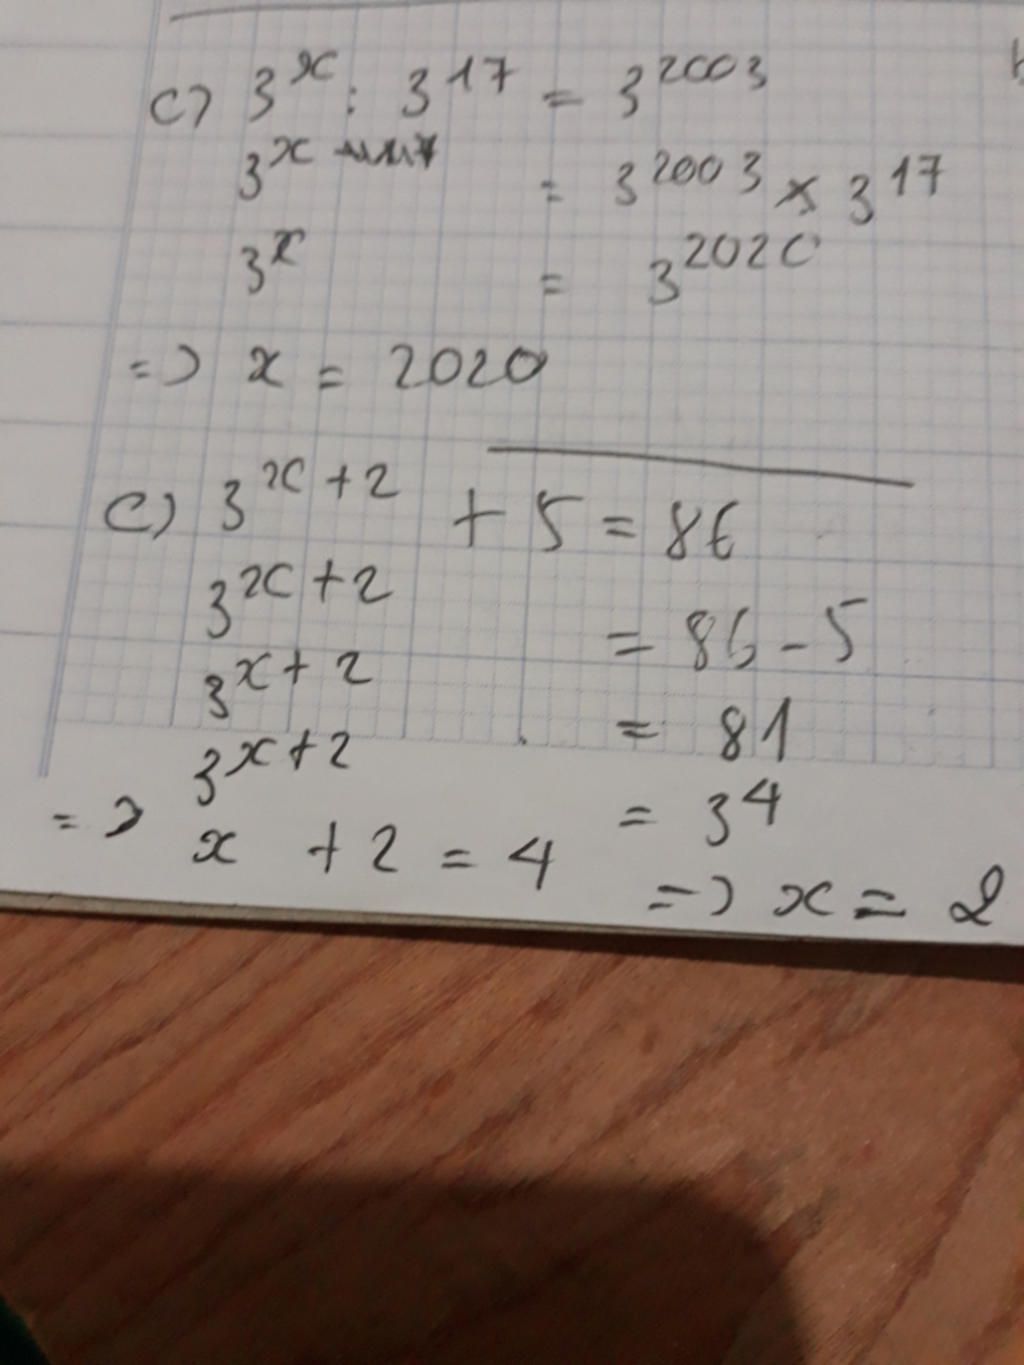 c) 3^x : 3^17 = 3^2003
3^x = 3^2003 x 3^17
3^x = 3^2020
=> x = 2020
c) 3^x+2 + 5 = 86
3^x+2 = 86 - 5
3^x+2 = 81
3^x+2 = 3^4
=> x + 2 = 4 => x = 2